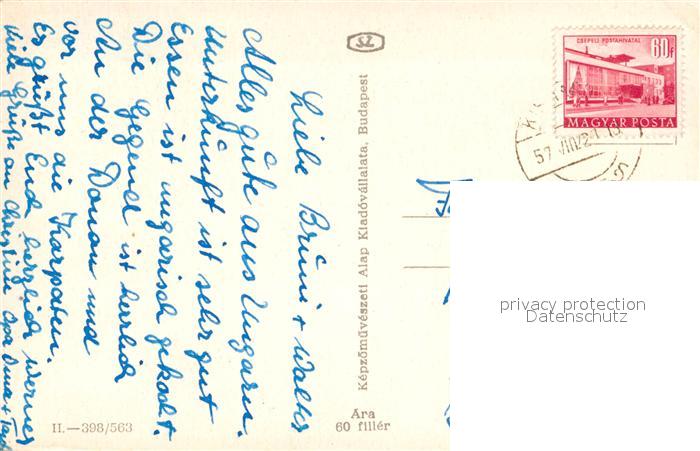 Liebe Bruni + Walter
Alles gute aus Ungarn.
Unterkunft ist sehr gut
Essen ist ungarisch gekocht.
Die Gegend ist herrlich
An der Donau und
vor uns die Karpaten.
Es grüßt Euch herzlich Werner
Viele Grüße an Christine Opa Oma +
Képzőművészeti Alap Kiadóvállalata, Budapest
Ára
60 fillér
II.—398/563
CSEPELI POSTAHIVATAL
60f
MAGYAR POSTA
57 VIII 21
privacy protection
Datenschutz